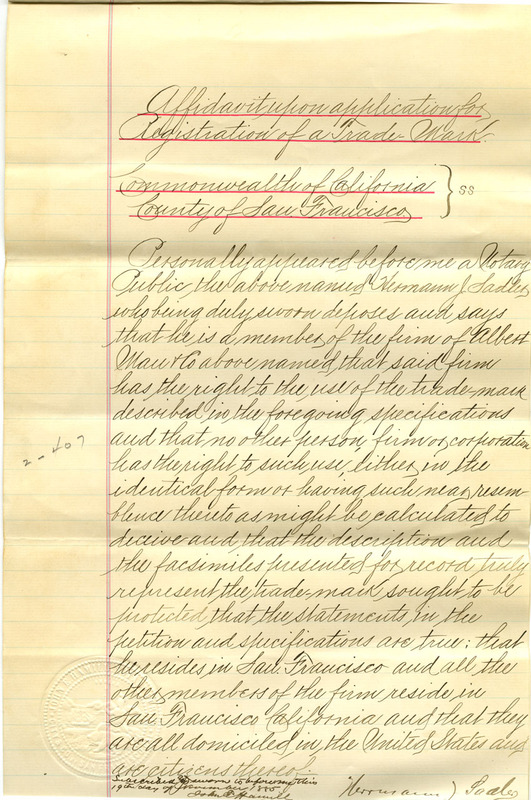 Affidavit upon application for
Registration of a Trade-Mark.
Commonwealth of California } ss
County of San Francisco
Personally appeared before me a Notary
Public the above named Hermann J Sadler,
who being duly sworn deposes and says
that he is a member of the firm of Albert
Mau & Co above named, that said firm
has the right to the use of the trade-mark
described in the foregoing specifications
and that no other person, firm or corporation
has the right to such use, either in the
identical form or having such near resem
blence thereto as might be calculated to
deceive and that the description and
the facsimiles presented for record truly
represent the trade-mark sought to be
protected that the statements in the
petition and specifications are true; that
he resides in San Francisco and all the
other members of the firm reside in
San Francisco California and that they
are all domiciled in the United States and
are citizens thereof.
Subscribed & sworn to before me this
19th day of November 1880
John E Hamill
Hermann J Sadler
2-407